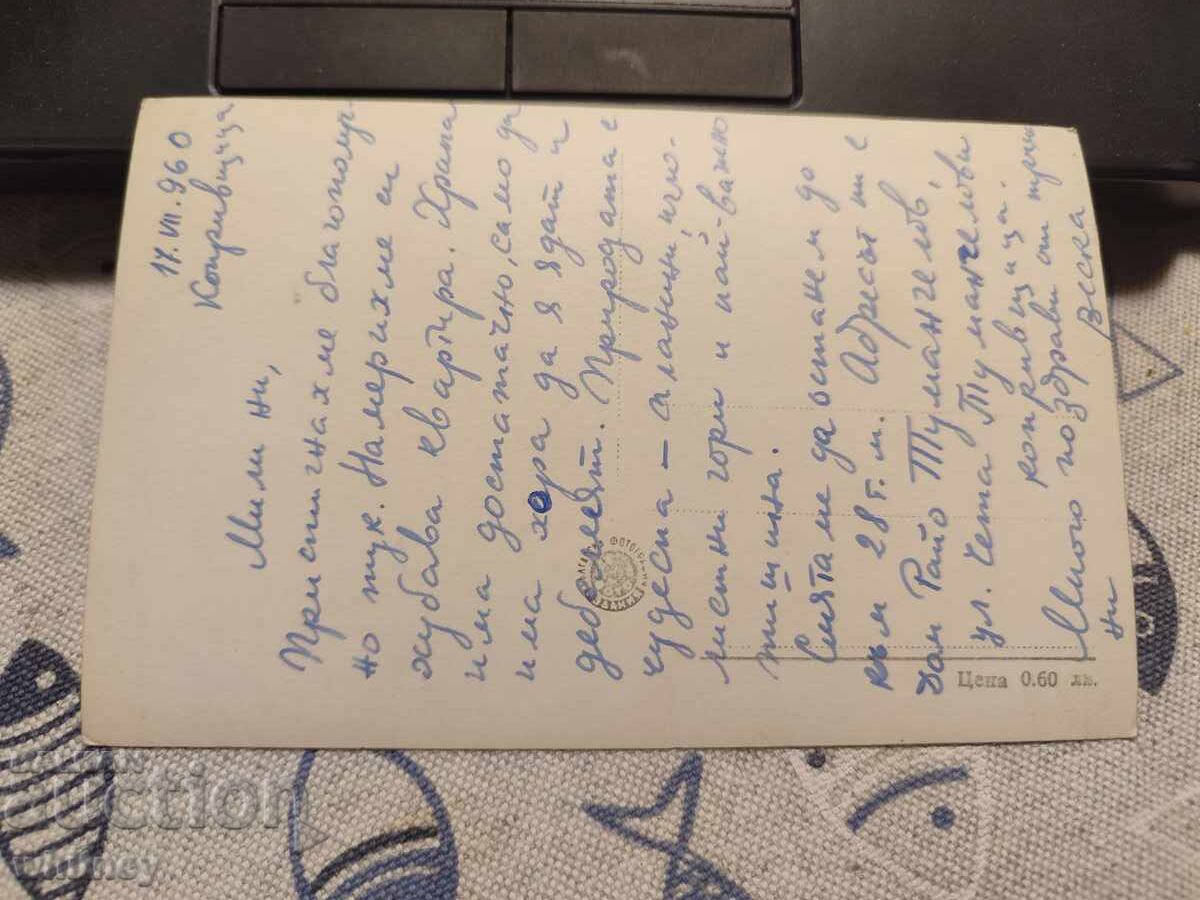 17.VII.960
Копривщица
Мили ни,
Пристигнахме благополуч-
но тук. Намерихме си
хубава квартира. Храна
има достатачно, само да
има хора да я ядат и
дебелеят. Природата е
чудесна – планини, игло-
листни гори и най-важно
тишина.
Смятаме да останем до
към 28 т.м. Адресът ни е
Дом Райо Тумангелов,
ул. Чета Тумангелови
копривщица.
Много поздрави от
ни Веска
Цена 0.60 лв.
ИЗДАНИЕ
BALKAN
auction
whitney